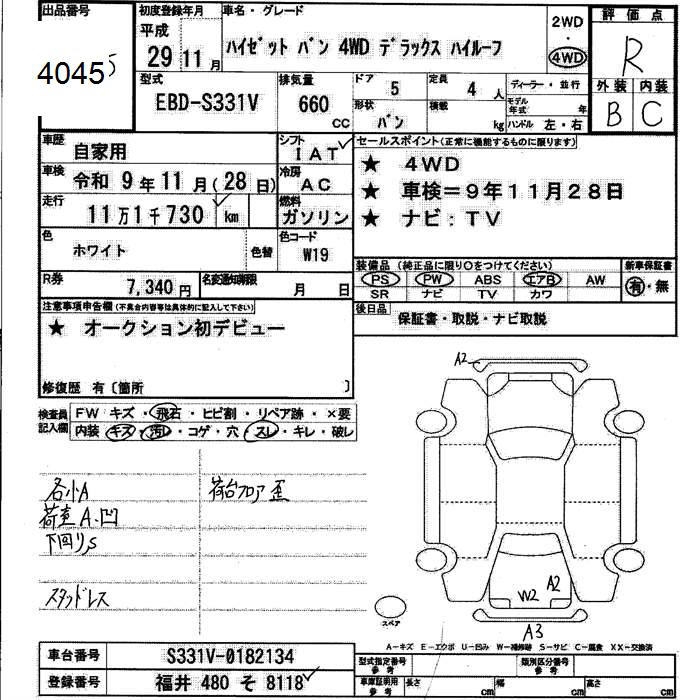 出品番号 初度登録年月 車名・グレード 2WD・4WD 評価点
40455
平成 29 11月 ハイゼット バン 4WD デラックス ハイルーフ R
型式 EBD-S331V 排気量 660 CC ドア 5 定員 4 人 ディーラー・並行
形状 バン 積載 kg モデル年式 年 ハンドル 左・右
外装 B 内装 C
車歴 自家用 シフト IAT
車検 令和 9年11月(28日) 冷房 AC
走行 11万1千730 km 燃料 ガソリン
色 ホワイト 色替 色コード W19
R券 7,340円 名変通知期限 月 日
セールスポイント(正常に機能するものに限ります)
★ 4WD
★ 車検=9年11月28日
★ ナビ:TV
装備品 (純正品に限り○をつけてください) 新車保証書
PS PW ABS エアB AW 有・無
SR ナビ TV カワ
後日品 保証書・取説・ナビ取説
注意事項申告欄(不具合内容等は具体的に記入して下さい)
★ オークション初デビュー
修復歴 有〔箇所 〕
検査員記入欄
FW キズ・飛石・ヒビ割・リペア跡・×要
内装 キズ・汚れ・コゲ・穴・スレ・キレ・破レ
各小A 荷台フロア歪
荷室A.凹
下回りS
スタッドレス
A2
W2 A2
A3
スペア
A-キズ E-エクボ U-凹み W-補修跡 S-サビ C-腐食 XX-交換済
車台番号 S331V-0182134
登録番号 福井 480 そ 8118
型式指定番号 参考 類別区分番号 参考
車庫証明用 参考 長さ cm 幅 cm 高さ cm